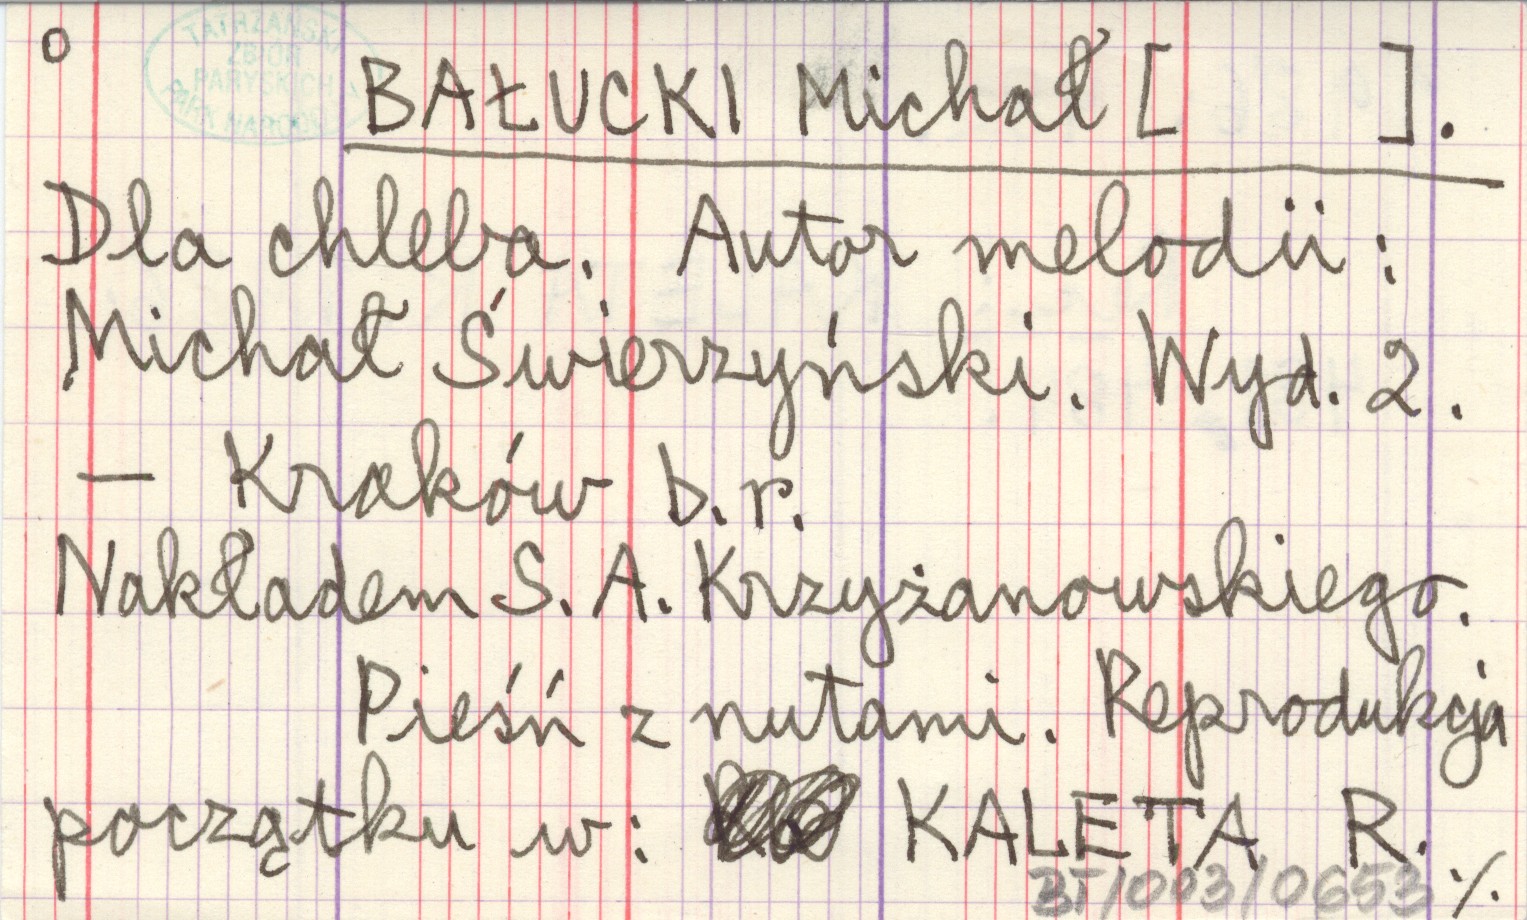 o
TATRZAŃSKI
ZBIÓR
PARYSKICH
PARK NARODOWY
BAŁUCKI Michał [ ].
Dla chleba. Autor melodii:
Michał Świerzyński. Wyd. 2.
— Kraków b.r.
Nakładem S. A. Krzyżanowskiego.
Pieśń z nutami. Reprodukcja
początku w: KALETA R.
BT/003/0653 ./.